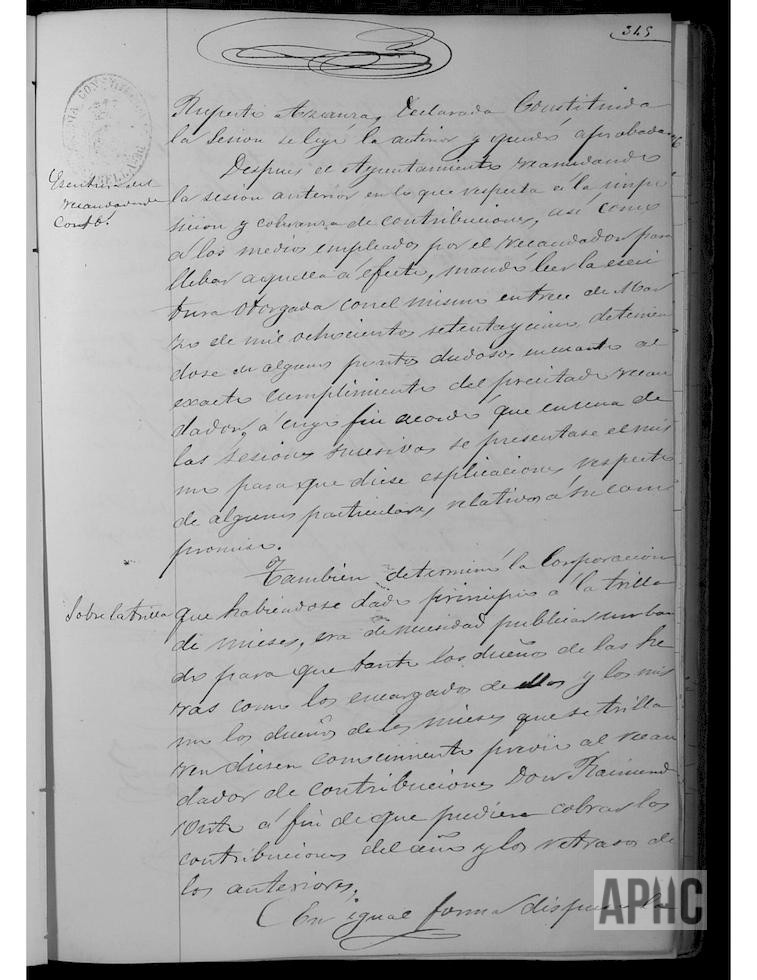 345
Ruperto Azcanza, declarada Constituida
la Sesion se leyó la anterior y quedó aprobada.
Despues el Ayuntamiento reanudando
la sesion anterior en lo que respecta a la impo
sicion y cobranza de contribuciones, así como
a los medios empleados por el recaudador para
llebar aquella á efecto, mandó leer la escri
tura otorgada con el mismo en trece de Mar
zo de mil ochocientos setenta y cinco, detenien
dose en algunos puntos dudosos en cuanto al
exacto cumplimiento del precitado recau
dador, á cuyo fin acordó que en una de
las sesiones sucesivas se presentase el mis
mo para que diese esplicaciones respecto
de algunos particulares relativos á su com
promiso.
Tambien determinó la Corporacion
que habiendose dado principio á la trilla
de mieses, era de necesidad publicar un ban
do para que tanto los dueños de las he
ras como los encargados de ellas y los mis
mos dueños de las mieses que se trilla
ren diesen conocimiento previo al recau
dador de contribuciones Don Raimundo
á fin de que pudiera cobrar las
contribuciones del año y los retrasos de
los anteriores.
En igual forma dispuso la
Escritura del
recaudador de
Contb.s
Sobre la trilla
APHC